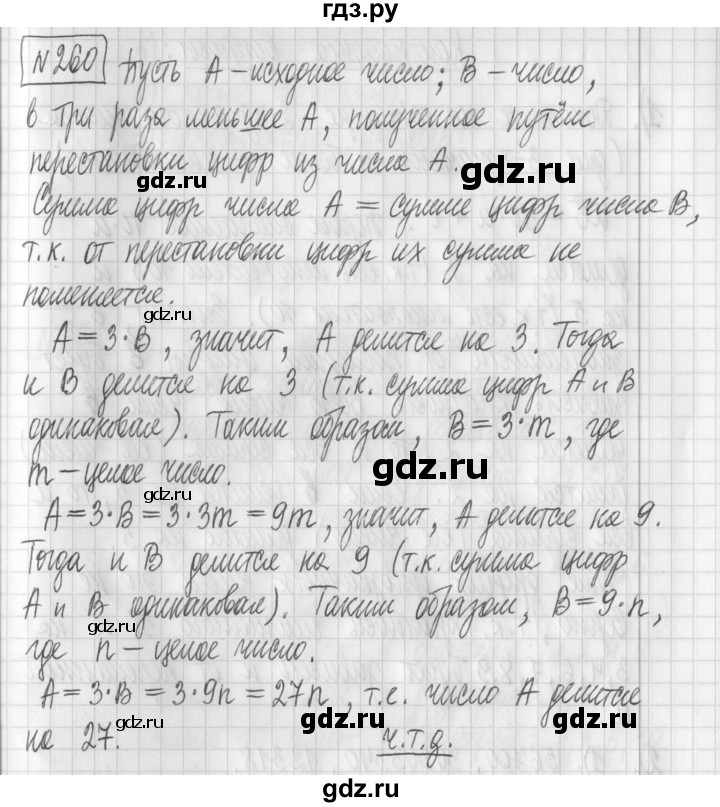 гдз.ру
№260 Пусть А – исходное число; В – число,
в три раза меньшее А, полученное путём
перестановки цифр из числа А.
gdz.ru
gdz.ru
Сумма цифр числа А = сумме цифр числа В,
т.к. от перестановки цифр их сумма не
поменяется.
gdz.ru
А = 3·В, значит, А делится на 3. Тогда
и В делится на 3 (т.к. сумма цифр А и В
одинаковая). Таким образом, В = 3·m, где
m – целое число.
gdz.ru
gdz.ru
А = 3·В = 3·3m = 9m, значит, А делится на 9.
Тогда и В делится на 9 (т.к. сумма цифр
А и В одинаковая). Таким образом, В = 9·n,
gdz.ru
где n – целое число.
А = 3·В = 3·9n = 27n, т.е. число А делится
gdz.ru
gdz.ru
на 27. ч.т.д.
gdz.ru